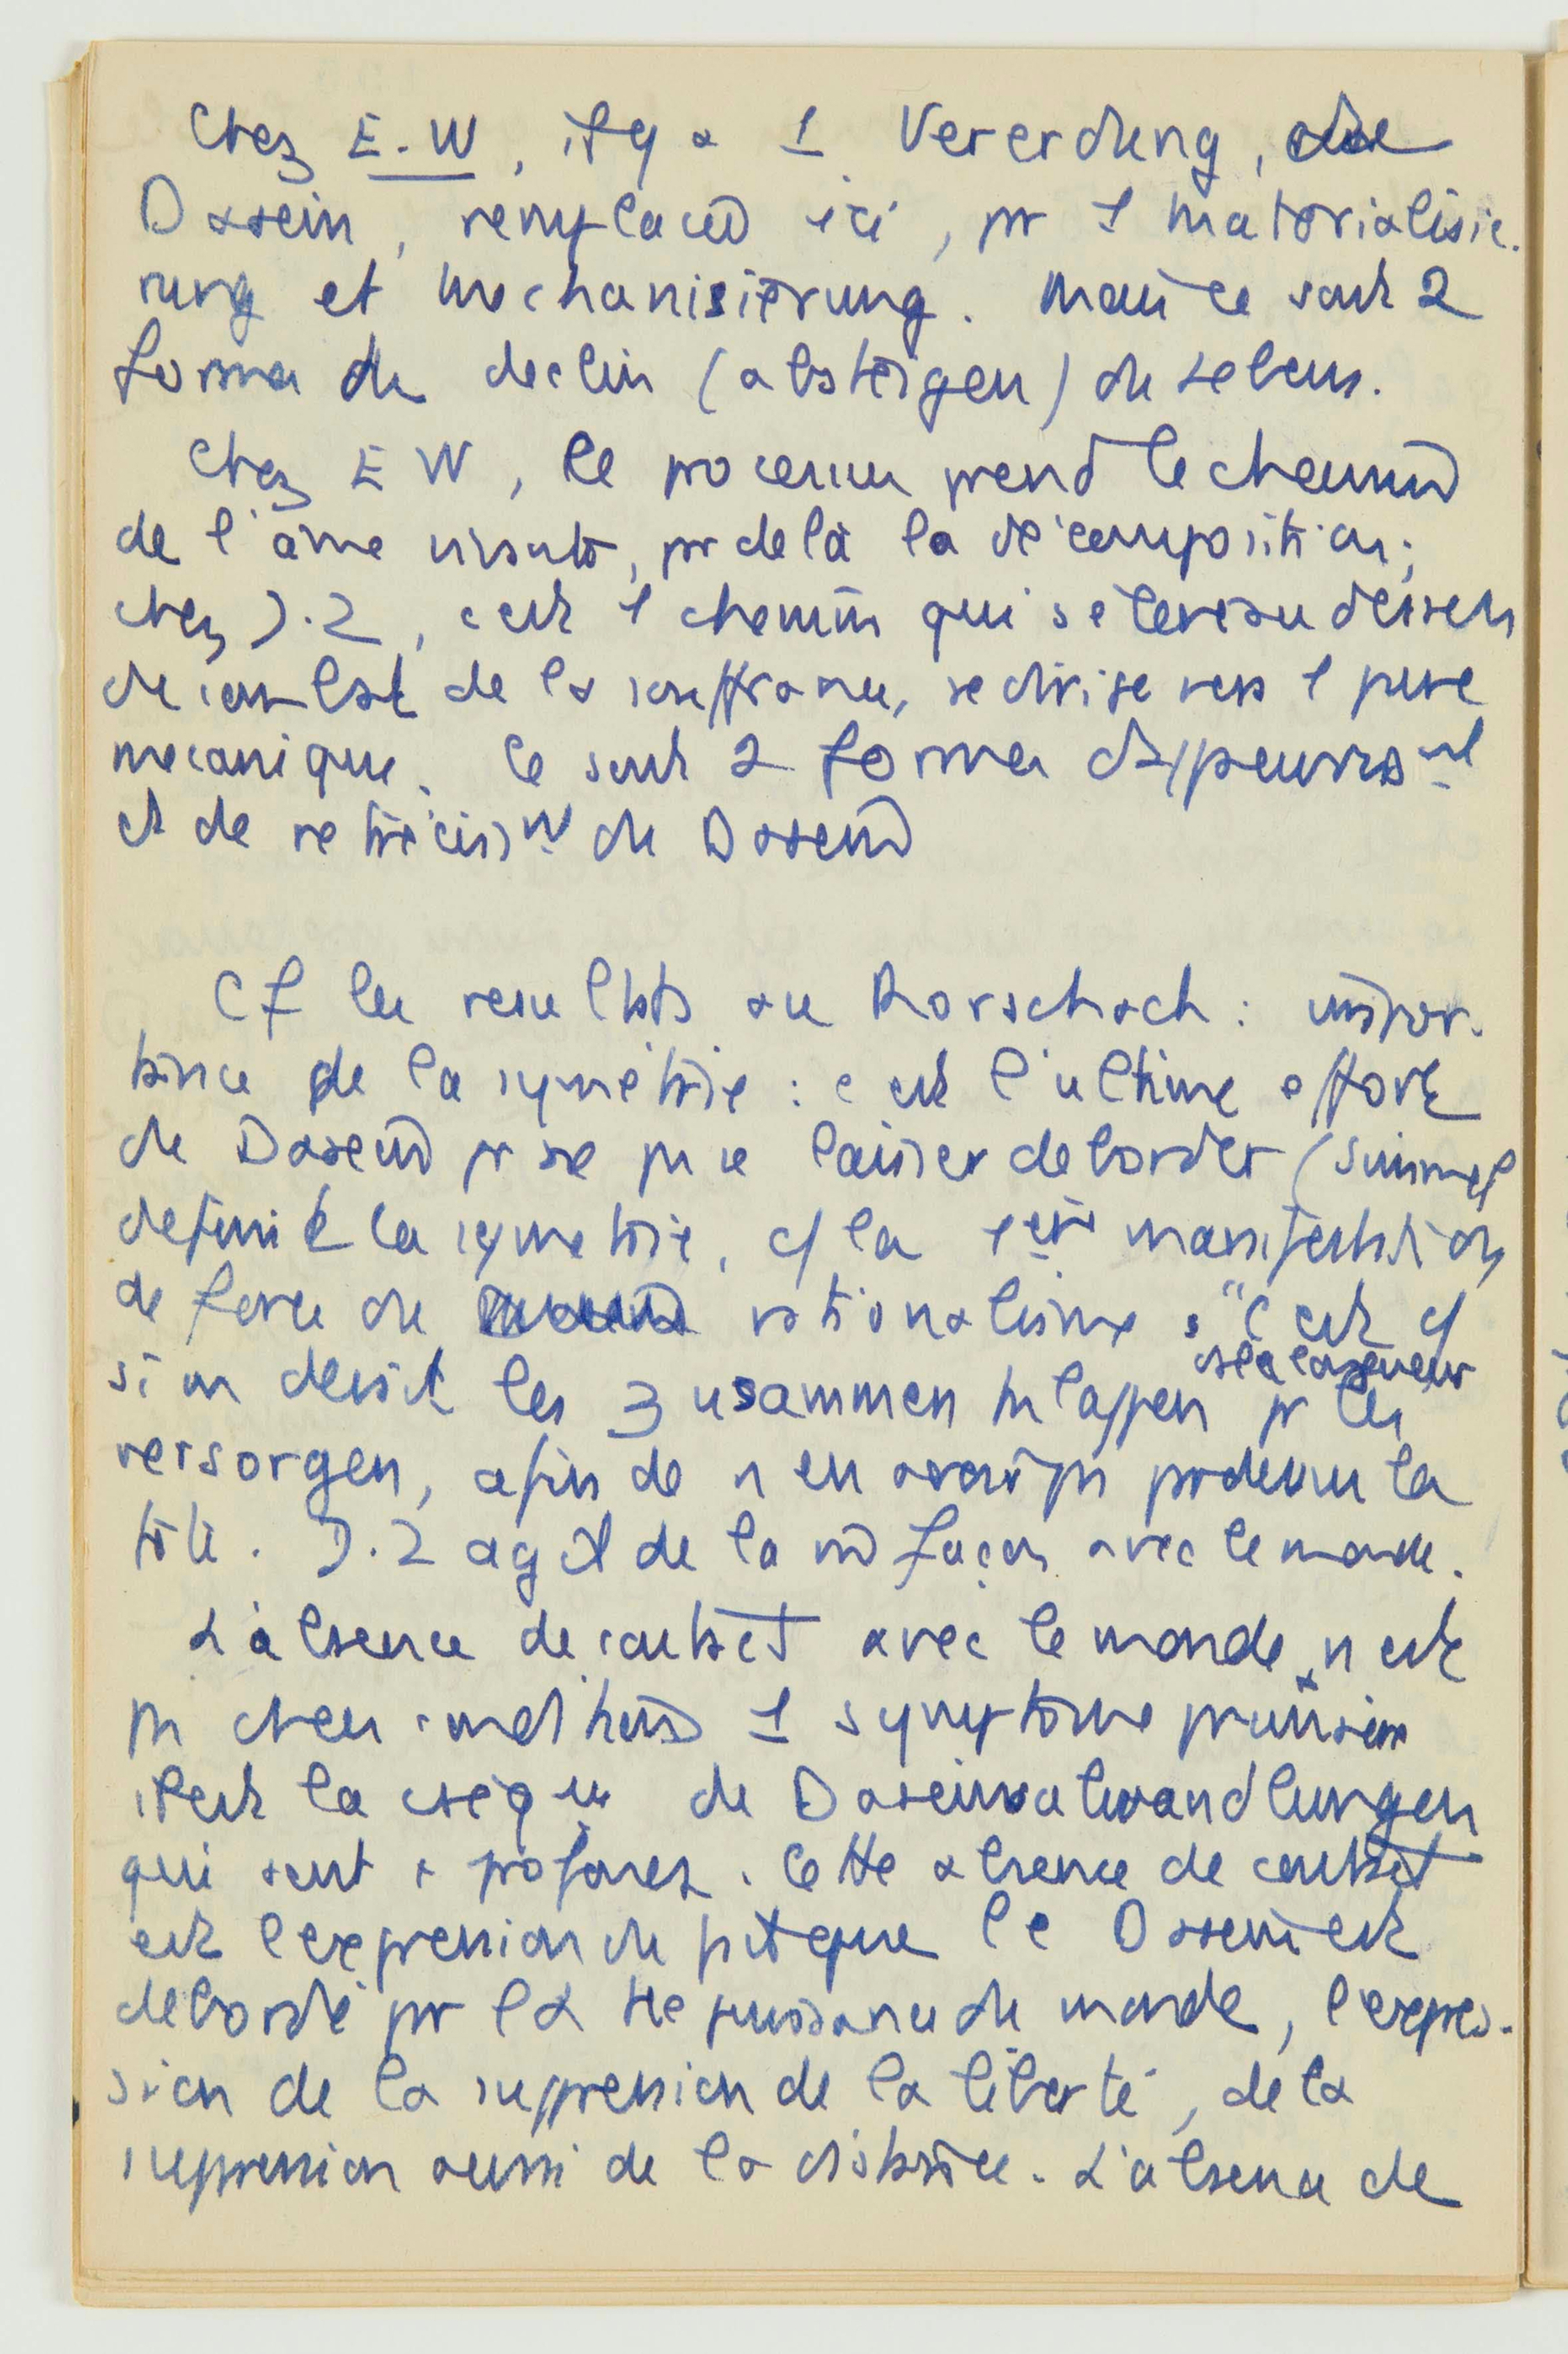 Chez E.W, il y a 1 Vererdung, du
Dasein, remplacé ici, pr 1 materialisie-
rung et mechanisierung. Mais ce sont 2
formes du declin (absteigen) du Lebens.
Chez E W, le processus prend le chemin
de l'âme vivante, pr delà la décomposition;
chez J.Z, c'est 1 chemin qui s'elevesau dessus
du combat de la souffrance, se dirige vers 1 pure
mecanique. Ce sont 2 formes d'appauvrisst
et de retrécisst du Dasein
Cf les resultats au Rorschach : impor-
tance de la symétrie : c'est l'ultime effort
du Dasein pr ne pas se laisser deborder (Simmel
definit la symetrie, c/ la 1ère manifestation
de force du rationalisme : "C'est c/
si on devait les Zusammenklappen pr les
versorgen, afin de n'en avoir pas pr dessus la
tête. J.Z agit de la m̄ façon avec le monde.
L'absence de contact avec le monde, n'est
pas chez 1 symptome primaire
il est la cséque de Daseinsabwandlungen
qui sont + profondes. Cette absence de contact
est l'expression du fait que le Dasein est
debordé pr la tte puissance du monde, l'expres-
sion de la suppression de la liberté, de la
suppression aussi de la distance. L'absence de